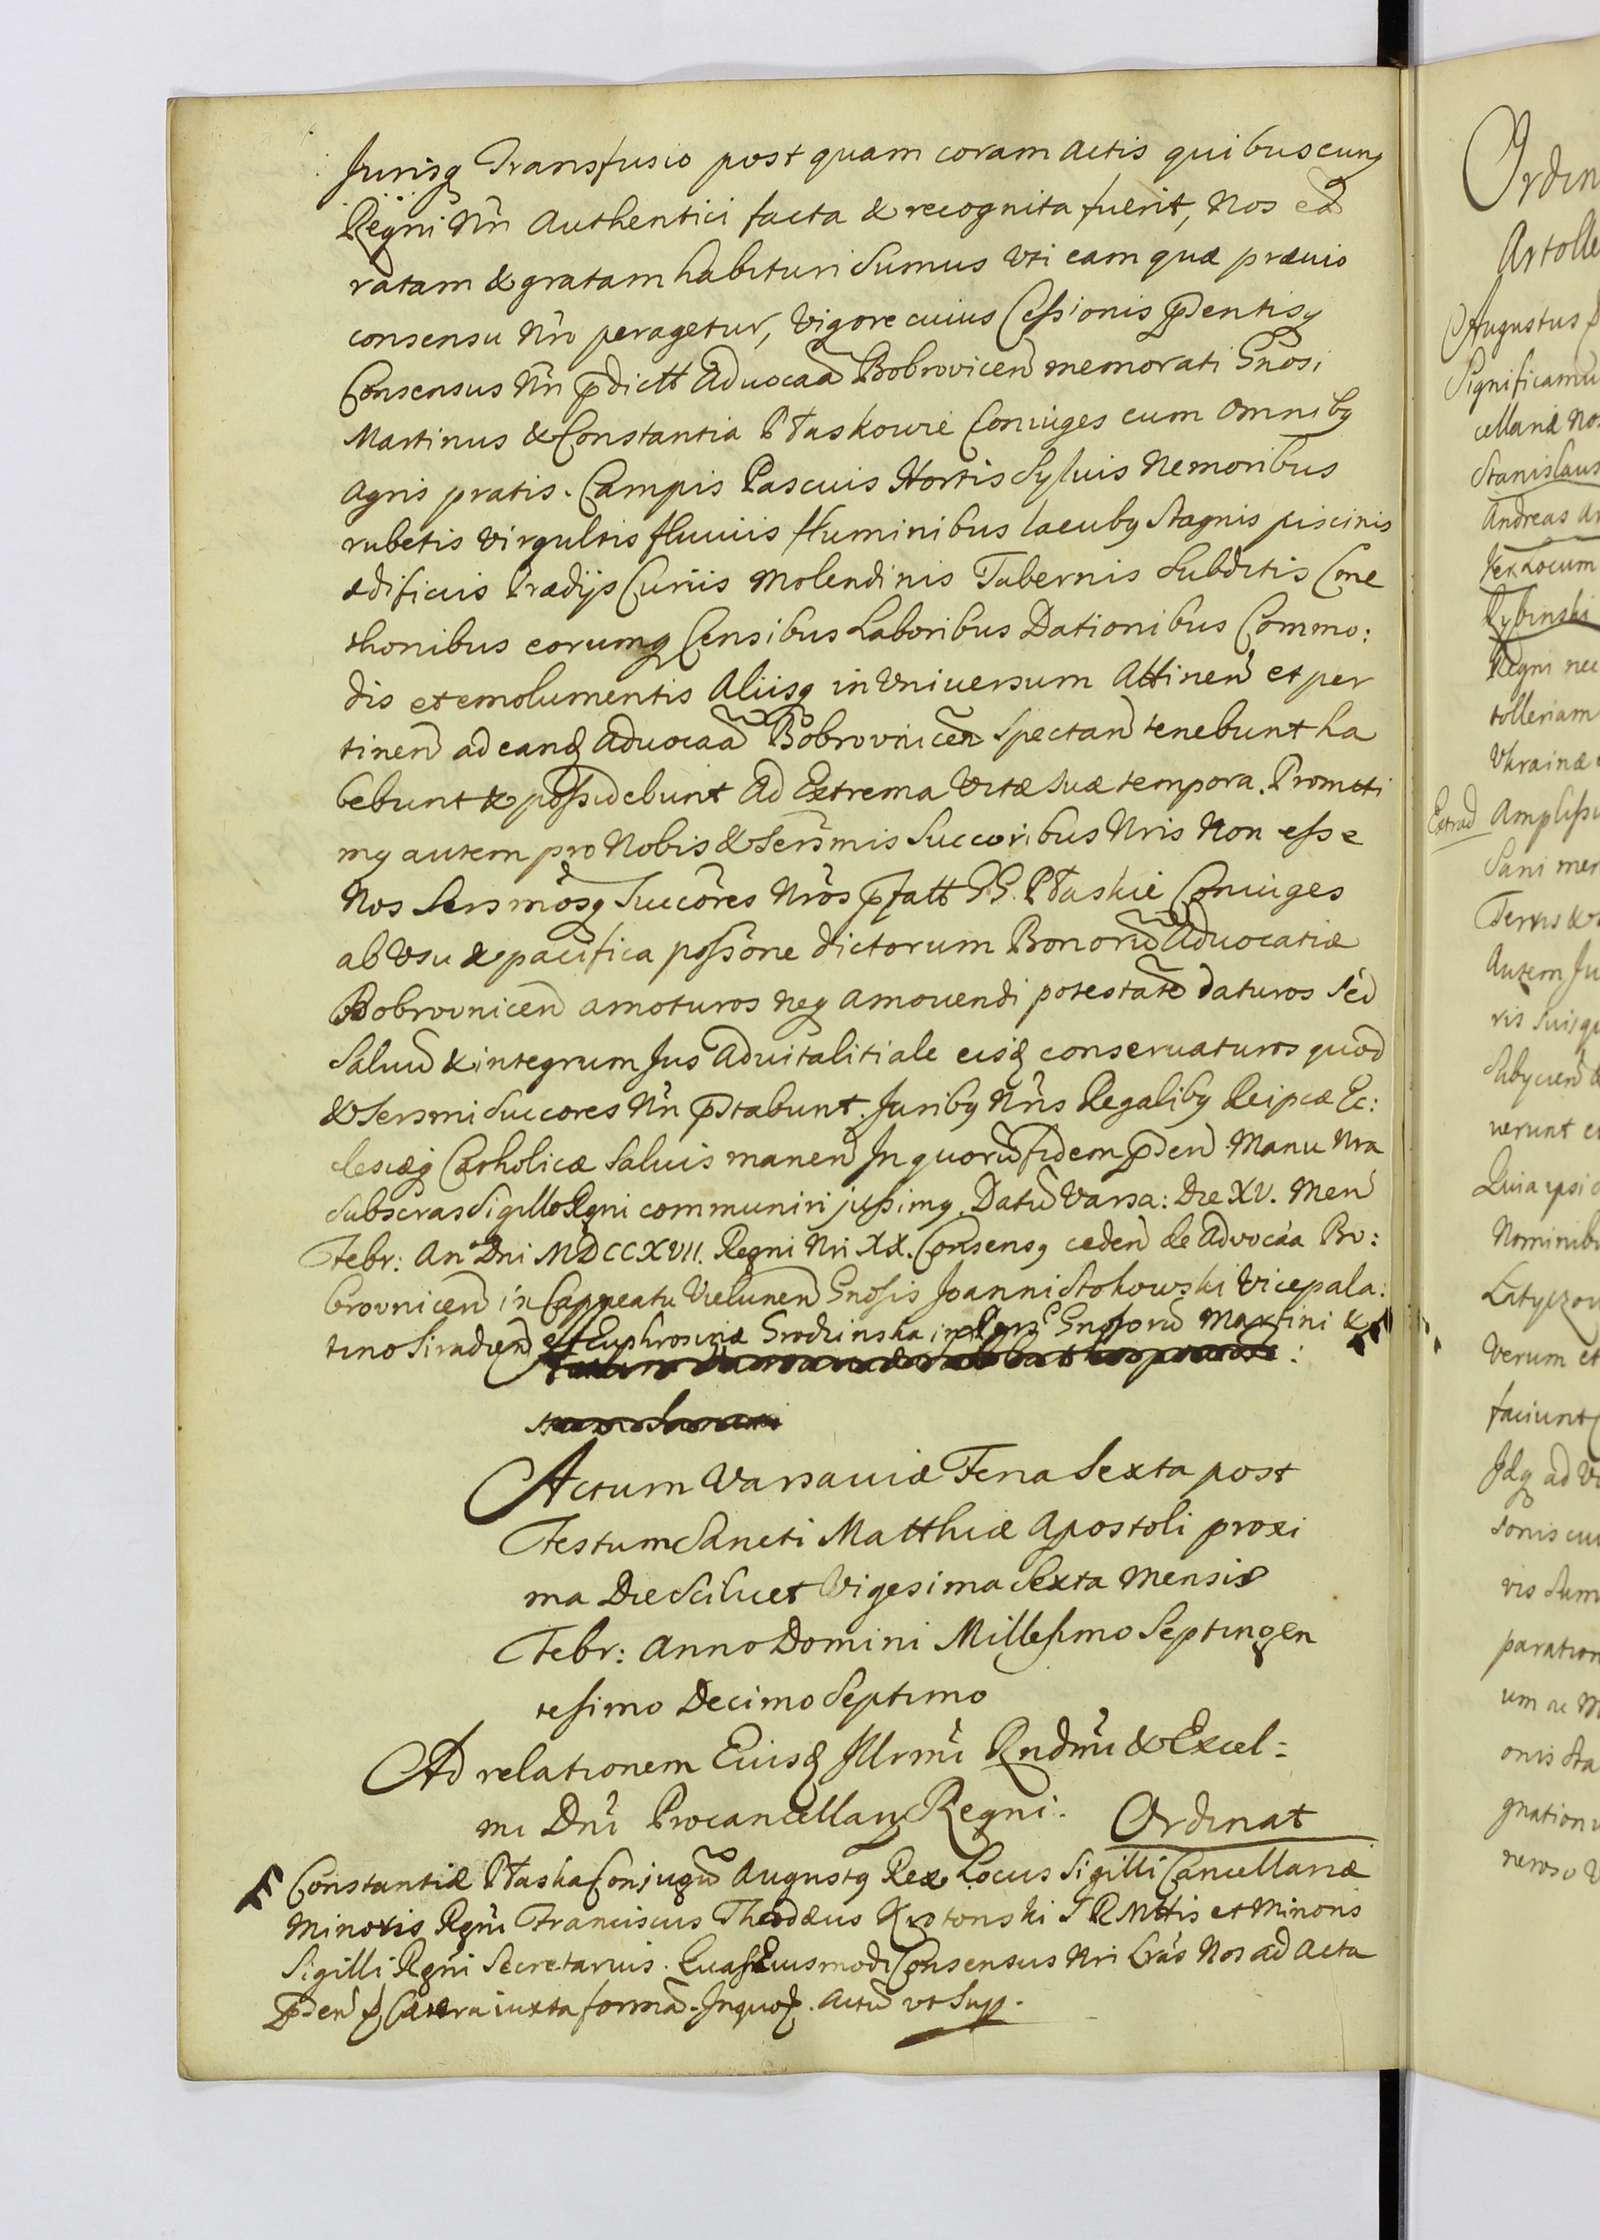 Jurisq Transfusio post quam coram actis quibuscunq
Regni Nri Authentici facta & recognita fuerit, Nos ea
ratam & gratam habituri Sumus Vti eam quæ prævio
consensu Nro peragetur, Vigore cuius Cessionis pdentisq
Consensus Nri pdictt Aduocaa Bobrovicen memorati Gnosi
Martinus & Constantia Ptaskowie Coniuges cum omnibq
Agris pratis. Campis Pascuis Hortis Syluis Nemoribus
rubetis Virgultis fluuiis fluminibus lacubq Stagnis piscinis
ædificiis Prædijs Curiis Molendinis Tabernis Subditis Cme
thonibus eorumq Censibus Laboribus Dationibus Commo:
dis et emolumentis Aliisq in Vniuersum Attinen et per
tinen ad eand Aduocaa Bobrovnicen Spectan tenebunt ha
bebunt & possidebunt Ad Extrema Vitæ suæ tempora. Promitti
mq autem pro Nobis & Sersmis Succoribus Nris Non esse
Nos Sersmosq Succores Nros pfatt GG. Ptaskie Coniuges
ab Vsu & pacifica possone dictorum Bonoru Aduocatiæ
Bobrovnicen amoturos neq Amouendi potestate daturos Sed
Saluu & integrum Jus Aduitalitiale eisd conseruaturos quod
& Sersmi Succores Nri pstabunt. Juribq Nris Regalibq Reipcæ Ec:
clesiæq Catholicæ Saluis manen In quoru fidem pden Manu Nra
Subscras Sigillo Rgni communiri jussimq. Datu Varsa: Die XV. Men
Febr: An Dni MDCCXVII. Regni Nri XX. Consensq ceden de Advocaa Bo:
brovnicen in Capneatu Vielunen Gnosis Joanni Stokowski Vicepala:
tino Siradien et Euphrosinæ Grodzinska in Pers Gnosoru Martini &
Actum Varsaviæ Feria Sexta post
Festum Sancti Matthiæ Apostoli proxi
ma Die Scilicet Vigesima Sexta Mensis
Febr: Anno Domini Millesimo Septingen
tesimo Decimo Septimo
Ad relationem Eiusd Jllrmi Rndmi & Excel=
mi Dni Procancellarij Regni. Ordinat
Constantiæ Ptaska Conjugu Augustq Rex Locus Sigilli Cancellariæ
Minoris Rgni Franciscus Thadæus Krotonski S R Mttis et Minoris
Sigilli Rgni Secretarius. Quas Eiusmodi Consensus Nri Lras Nos ad Acta
pden p Cætera iuxta forma. In quoR. Actu vt Supp.
Ordin
Artolle
Augustus
Significamu
cellariæ No
Stanislaus
Andreas
Locum
Rybinski
Regni nec
tolleriam
Vkrainæ
Extrad Amplissi
Sani men
Terris &
Autem Ju
ris Suisqu
uerunt
Quia ipsi
Nominib
Latyczou
Verum et
faciunt
Jdq ad V
vis Sum
paration
um ac M
onis Sta
gnation
neroso V